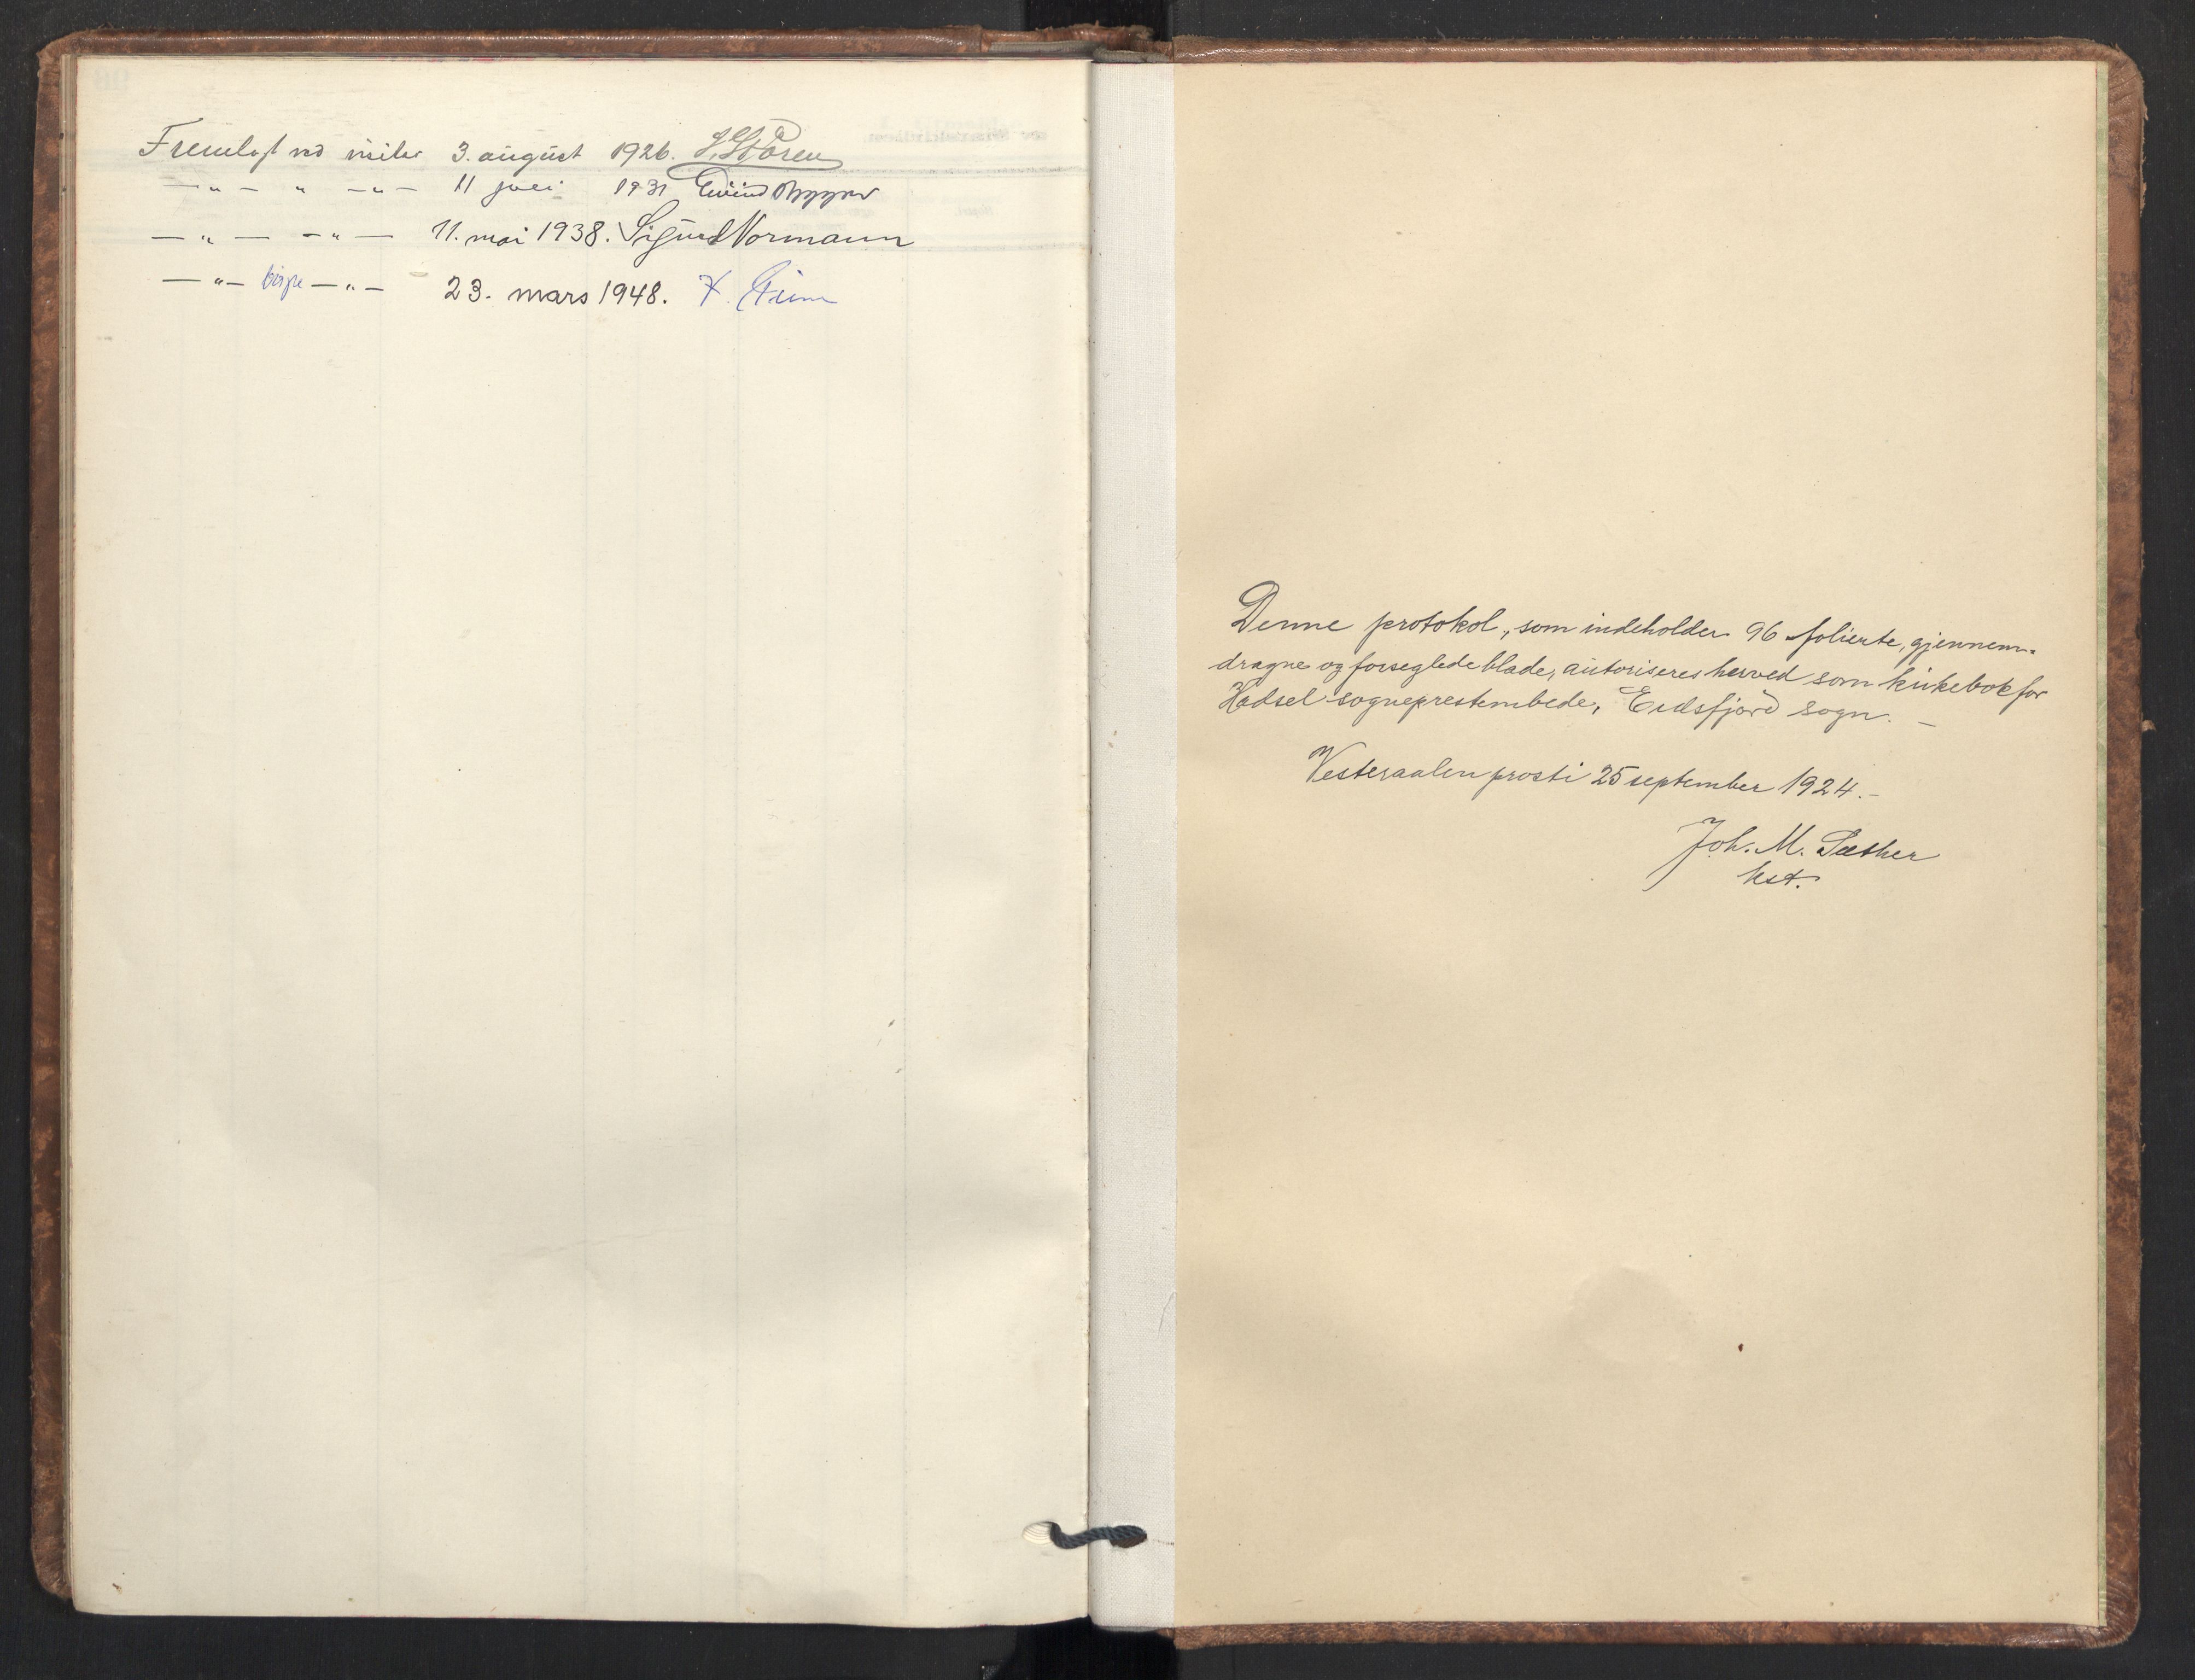 Fremlagt ved visitas 3. august 1926. J. Støren
— „ — „ — „ — 11 juli 1931 Eivind Berggrav
— „ — — „ — 11. mai 1938. Sigurd Normann
— „ — bispe — „ — 23. mars 1948.
Denne protokol, som indeholder 96 folierte, gjennem-
dragne og forseglede blade, autoriseres herved som kirkebok for
Hadsel sogneprestembede, Eidsfjord sogn. —
Vesteraalen prosti 25 september 1924. –
Joh. M. Sæther
kst.